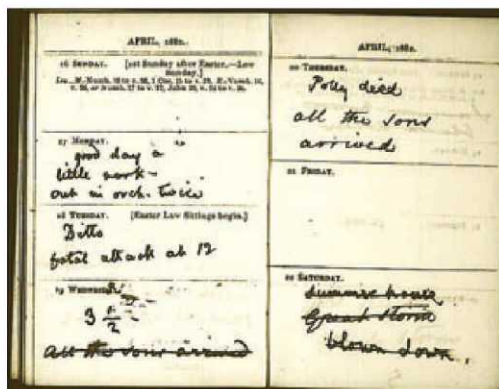 APRIL, 1882.
16 SUNDAY. [1st Sunday after Easter.—Low
Sunday.]
17 MONDAY.
good day a
little work –
out in orch. twice
18 TUESDAY. [Easter Law Sittings begin.]
Ditto
fatal attack at 12
19 WEDNESDAY
3 1/2
all the sons arrived
APRIL, 1882.
20 THURSDAY.
Polly died
all the sons
arrived
21 FRIDAY.
22 SATURDAY.
summer house
Great storm
blown down.